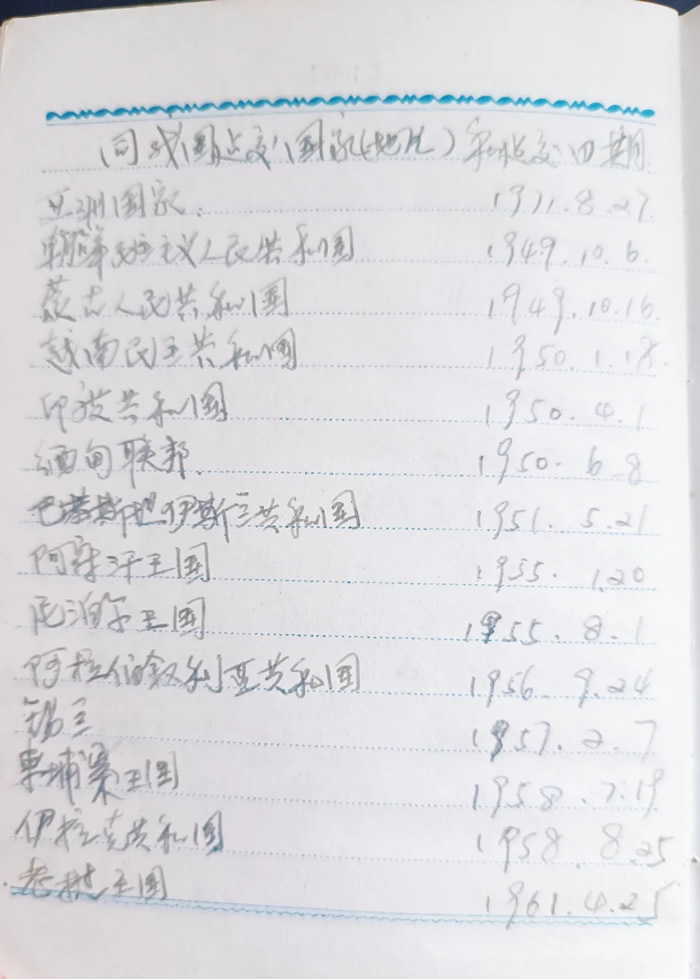 (同我国建交国家(地区)和建交日期
亚洲国家: 1971.8.27.
朝鲜民主主义人民共和国 1949.10.6.
蒙古人民共和国 1949.10.16.
越南民主共和国 1950.1.18.
印度共和国 1950.4.1
缅甸联邦. 1950.6.8
巴基斯坦伊斯兰共和国 1951.5.21
阿富汗王国 1955.1.20
尼泊尔王国 1955.8.1
阿拉伯叙利亚共和国 1956.9.24
锡兰 1957.2.7
柬埔寨王国 1958.7.19
伊拉克共和国 1958.8.25
老挝王国 1961.4.25